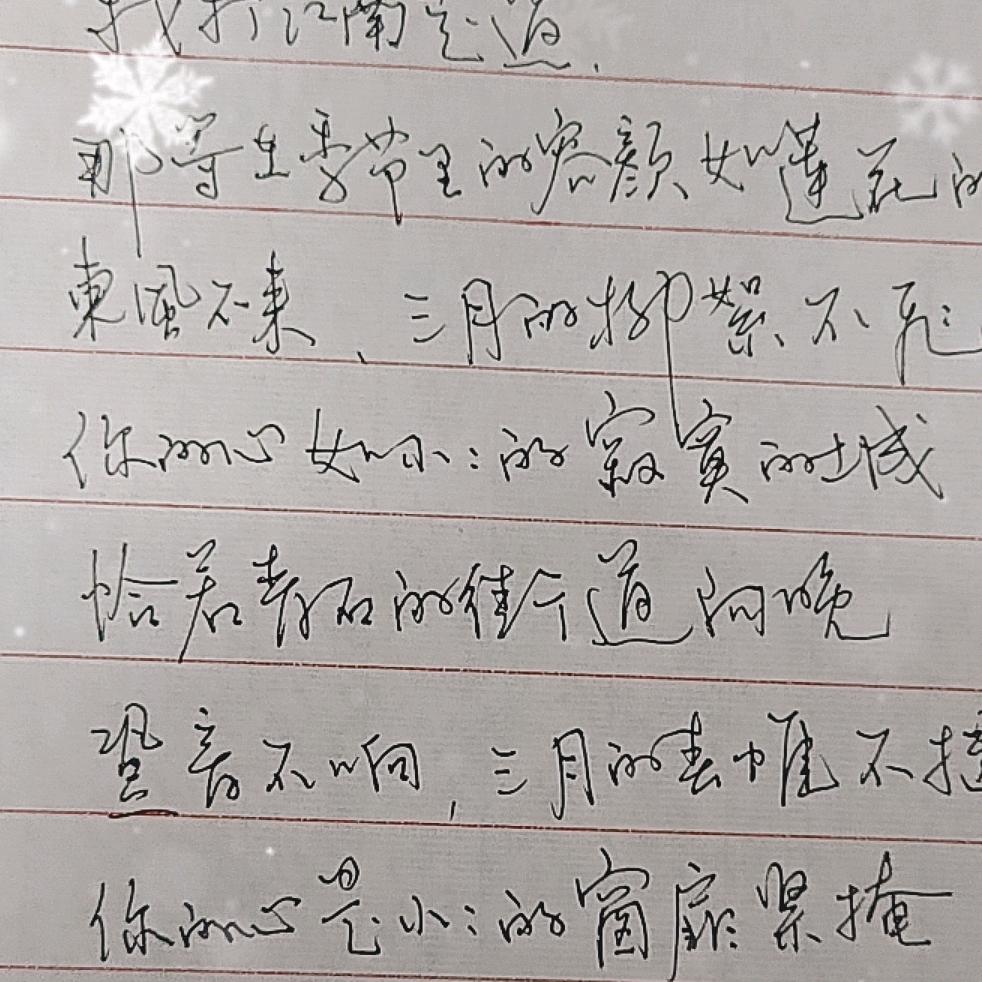 我打江南走過
那等在季节里的容颜如莲花的
東風不来、三月的柳絮不飞
你的心如小小的寂寞的城
恰若青石的街道向晚
跫音不响，三月的春帷不揭
你的心是小小的窗扉紧掩